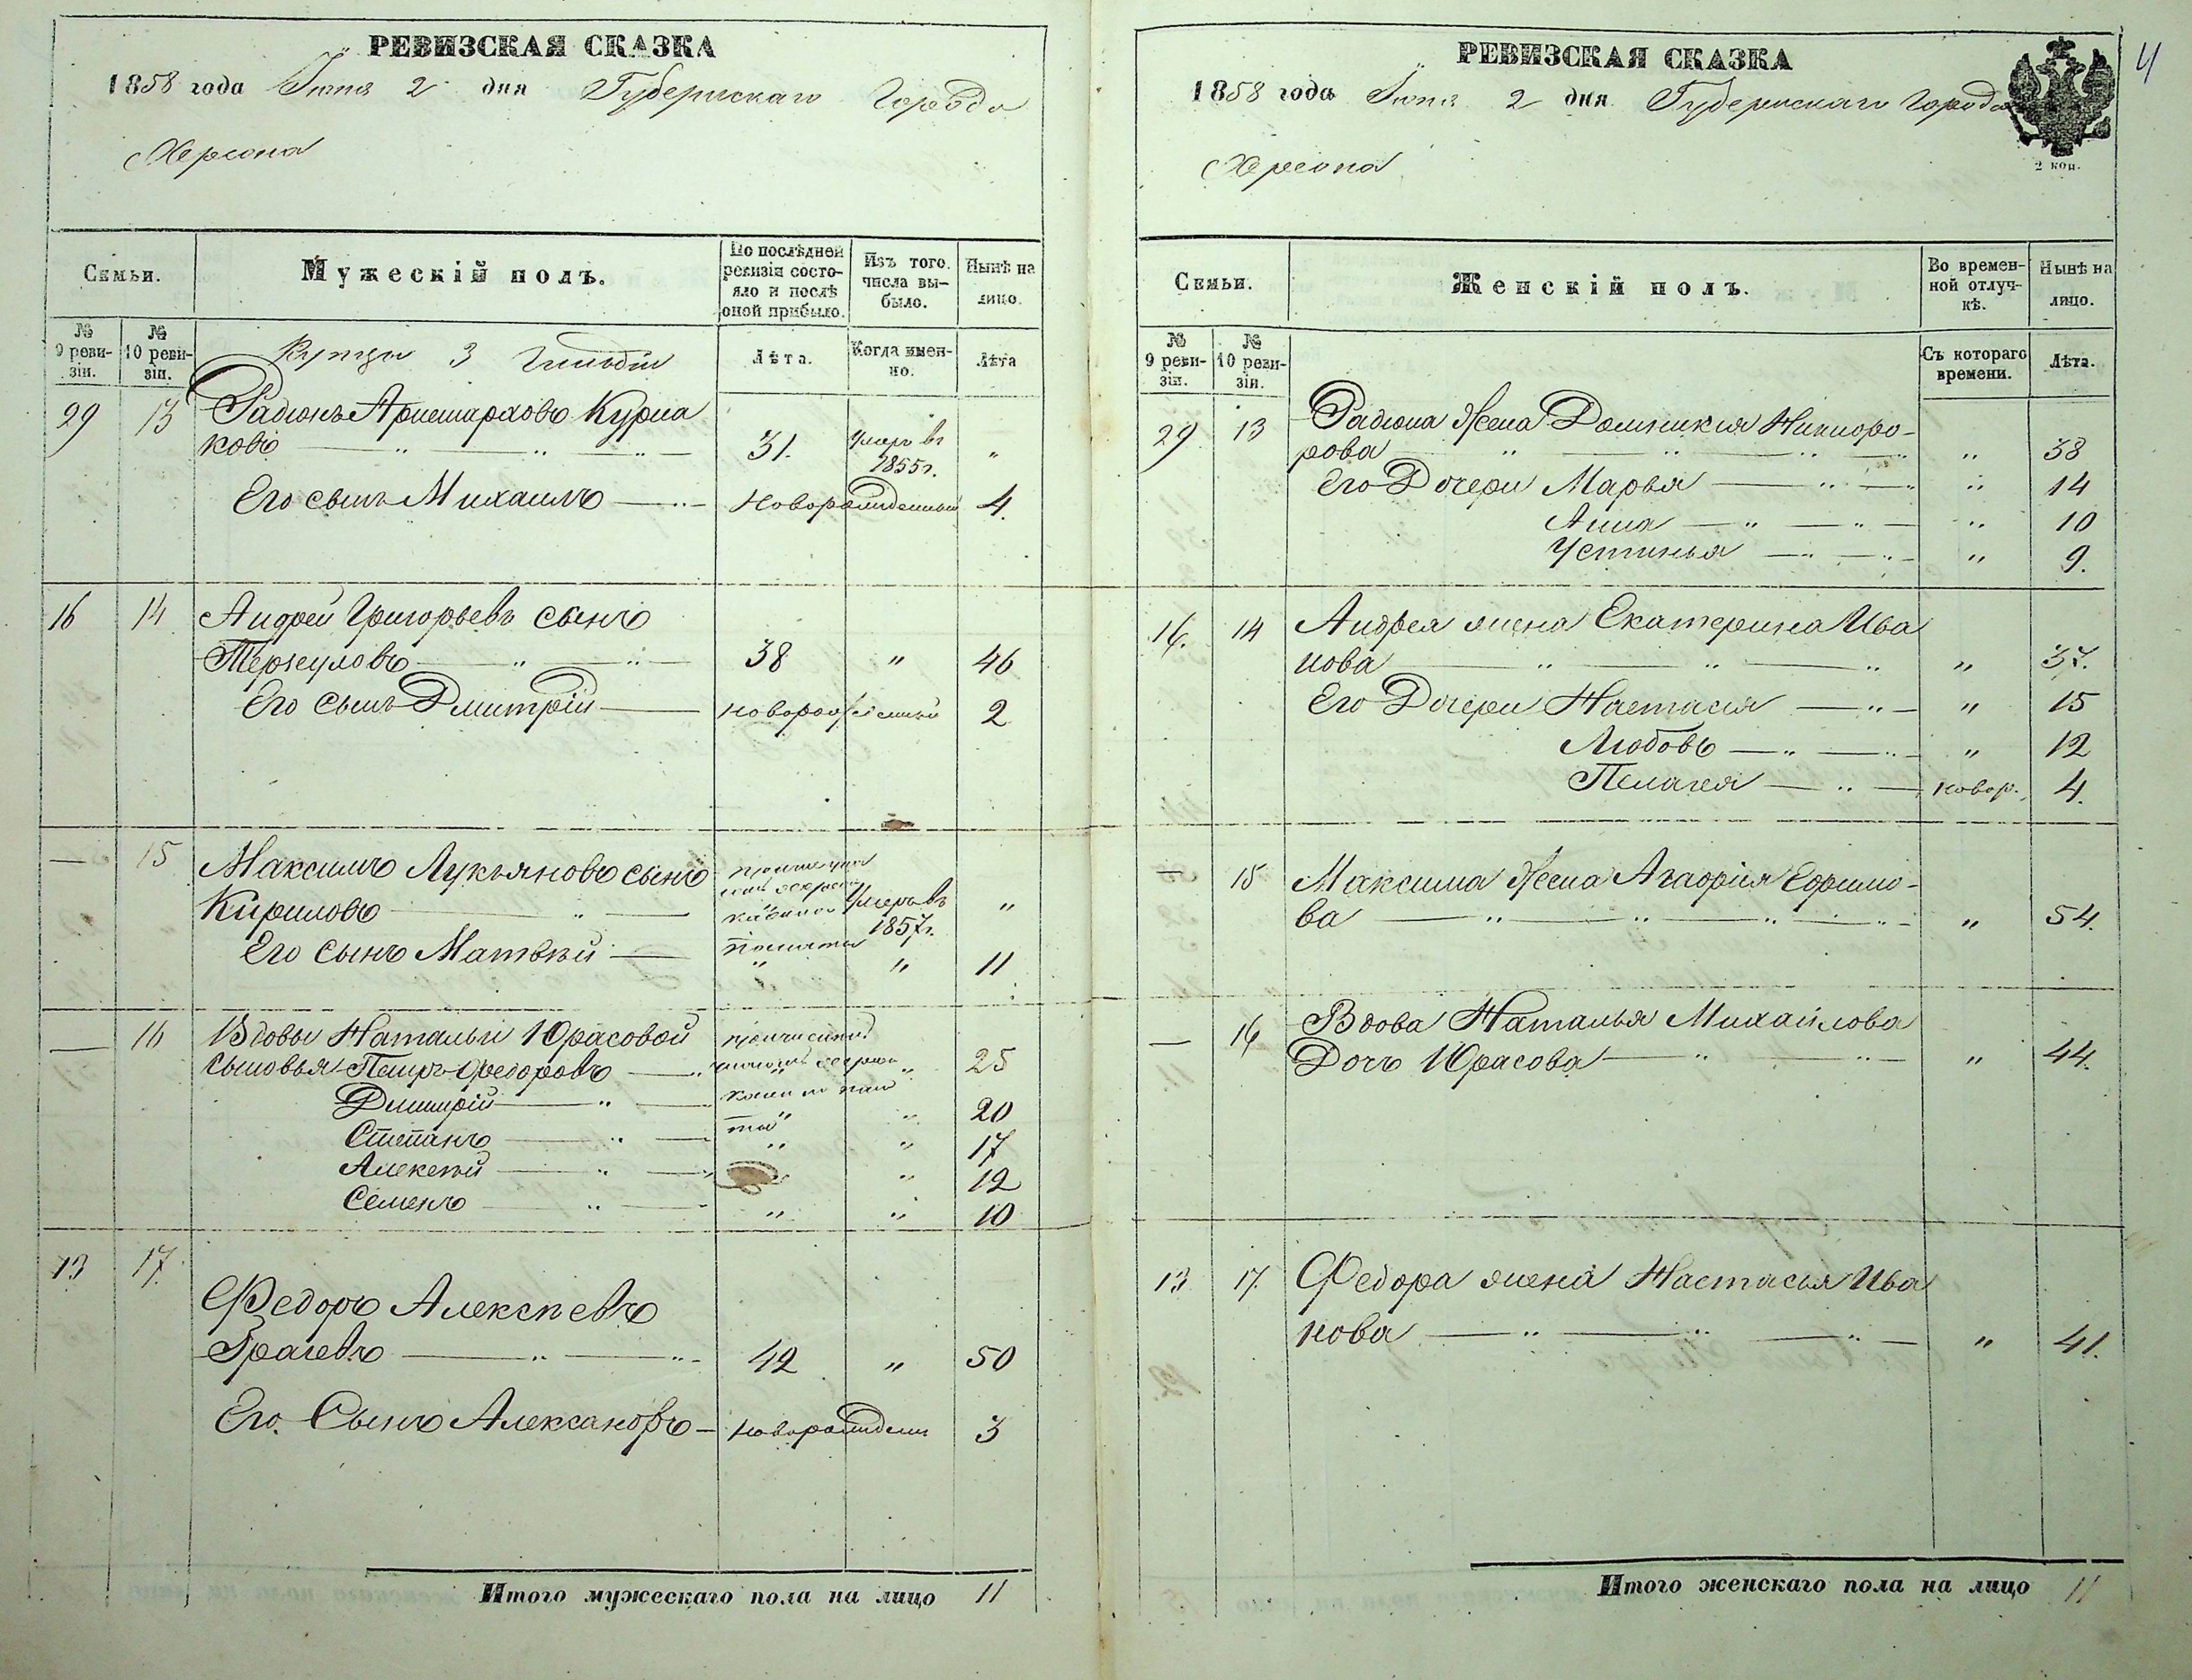 РЕВИЗСКАЯ СКАЗКА
1858 года Июня 2 дня Губернскаго Города
Херсона
Семьи.
Мужескій полъ.
По послѣдней ревизіи состо-
яло и послѣ
оной прибыло.
Изъ того числа вы-
было.
Нынѣ на лицо.
№ 9 реви-
зіи.
№ 10 реви-
зіи.
Купцы 3 Гильдіи
Лѣта.
Когда имен-
но.
Лѣта
29 13 Радионъ Аристарховъ Курна
ковъ 31. умеръ въ 1855 г. "
Его сынъ Михаилъ Новорожденный 4.
16 14 Андрей Григорьевъ сынъ
Теркуловъ 38 " 46
Его сынъ Дмитрій новорожденный 2
— 15 Максимъ Лукьяновъ сынъ
Кириловъ Умеръ въ 1857 г. "
Его сынъ Матвѣй " " 11
— 16 Вдовы Натальи Юрасовой
сыновья Петръ Федоровъ " 25
Дмитрій " " 20
Степанъ " " 17
Алексѣй " 12
Семенъ " " 10
13 17. Федоръ Алексѣевъ
Грачевъ 42 " 50
Его Сынъ Александръ новорожден 3
Итого мужескаго пола на лицо 11
4
РЕВИЗСКАЯ СКАЗКА
1858 года Июня 2 дня Губернскаго Города
Херсона
2 коп.
Семьи.
Женскій полъ.
Во времен-
ной отлуч-
кѣ.
Нынѣ на лицо.
№ 9 реви-
зіи.
№ 10 реви-
зіи.
Съ котораго времени.
Лѣта.
29 13 Радиона Жена Домникия Никифо-
рова " 38
Его Дочери Марья " 14
Анна " 10
Устинья " 9.
16. 14 Андрея жена Екатерина Ива
нова " 37.
Его Дочери Настасия " 15
Любовь " 12
Пелагея новор. 4.
— 15 Максима Жена Агафия Ефимо-
ва " 54.
— 16 Вдова Наталья Михайлова
Дочь Юрасова " 44.
13 17. Федора жена Настасья Ива
нова " 41.
Итого женскаго пола на лицо 11